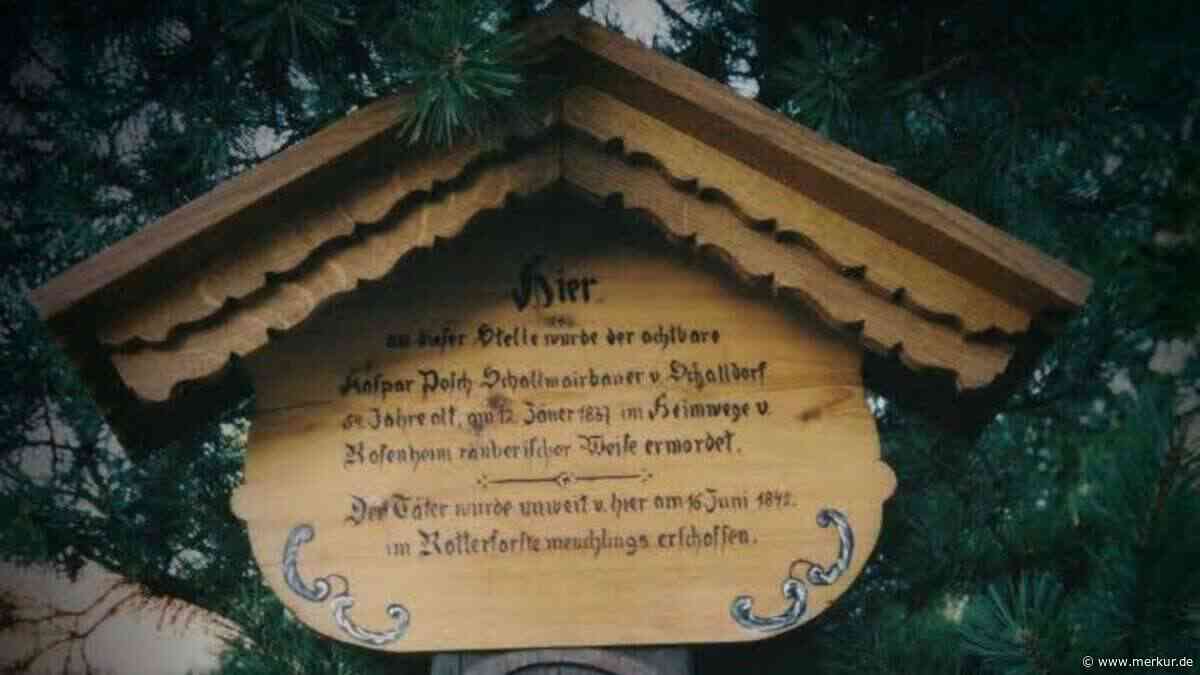 Hier
an dieser Stelle wurde der achtbare
Kaspar Posch Schallmairbauer v. Schalldorf
Jahre alt, am 12. Jäner 1837 im Heimwege v.
Rosenheim räuberischer Weise ermordet.
Der Täter wurde unweit v. hier am 16. Juni 1842.
im Rotterforste meuchlings erschossen.
© www.merkur.de